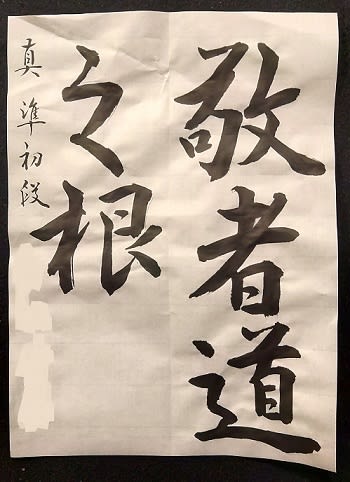 敬者道
之根
真 準初段